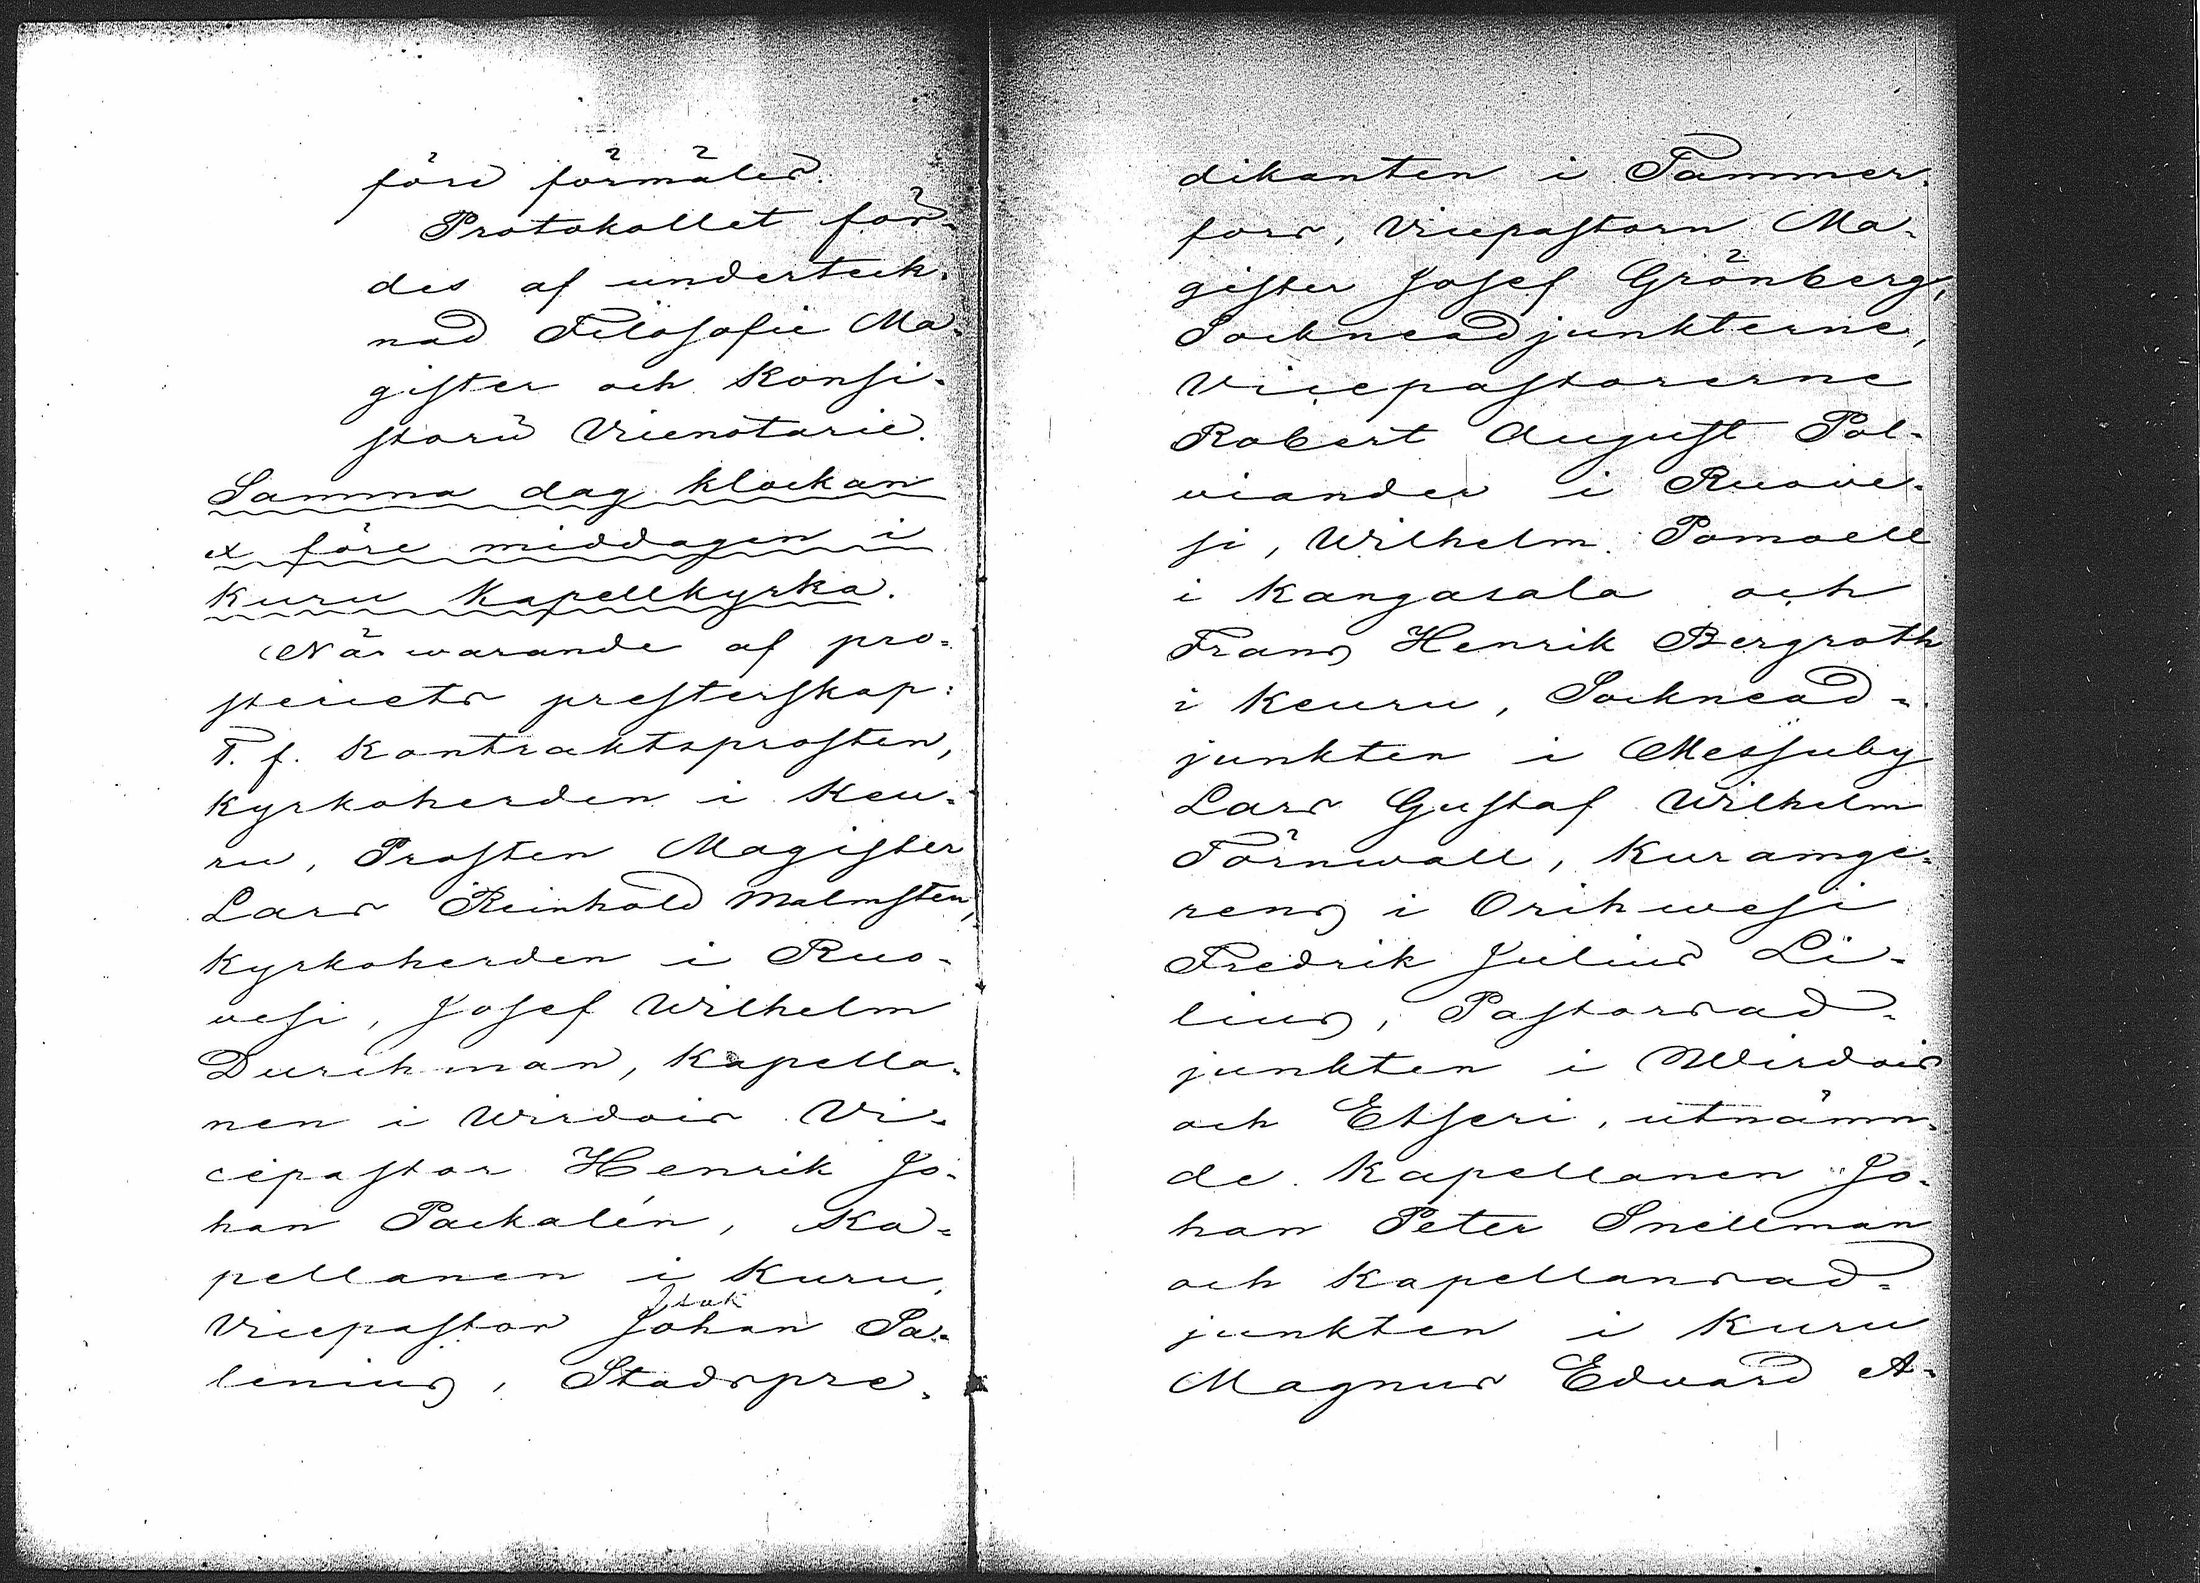 före förmäles.
Protokollet för-
des af underteck-
nad Filosofie Ma-
gister och Konsi-
storii Vicenotarie.
Samma dag klockan
x före middagen i
Kuru Kapellkyrka.
Närwarande af pro-
steriets presterskap:
T. f. Kontraktsprosten,
Kyrkoherden i Keu-
ru, Prosten Magister
Lars Reinhold Malmsten,
Kyrkoherden i Ruo-
vesi, Josef Wilhelm
Durchman, Kapella-
nen i Wirdois Vi-
cepastor Henrik Jo-
han Packalén, Ka-
pellanen i Kuru,
Isak
Vicepastor Johan Sa-
lenius, Stadspre-
dikanten i Tammer-
fors, Vicepastorn Ma-
gister Josef Grönberg,
Sockneadjunkterne,
Vicepastorerne
Robert August Pol-
viander i Ruove-
si, Wilhelm Pomoell
i Kangasala och
Frans Henrik Bergroth
i Keuru, Socknead-
junkten i Messuby
Lars Gustaf Wilhelm
Törnwall, Kuramge-
rens i Orihwesi
Fredrik Julius Li-
lius, Pastorsad-
junkten i Wirdois
och Etseri, utnämn-
de Kapellanen Jo-
han Peter Snellman
och Kapellansad-
junkten i Kuru
Magnus Edvard A-